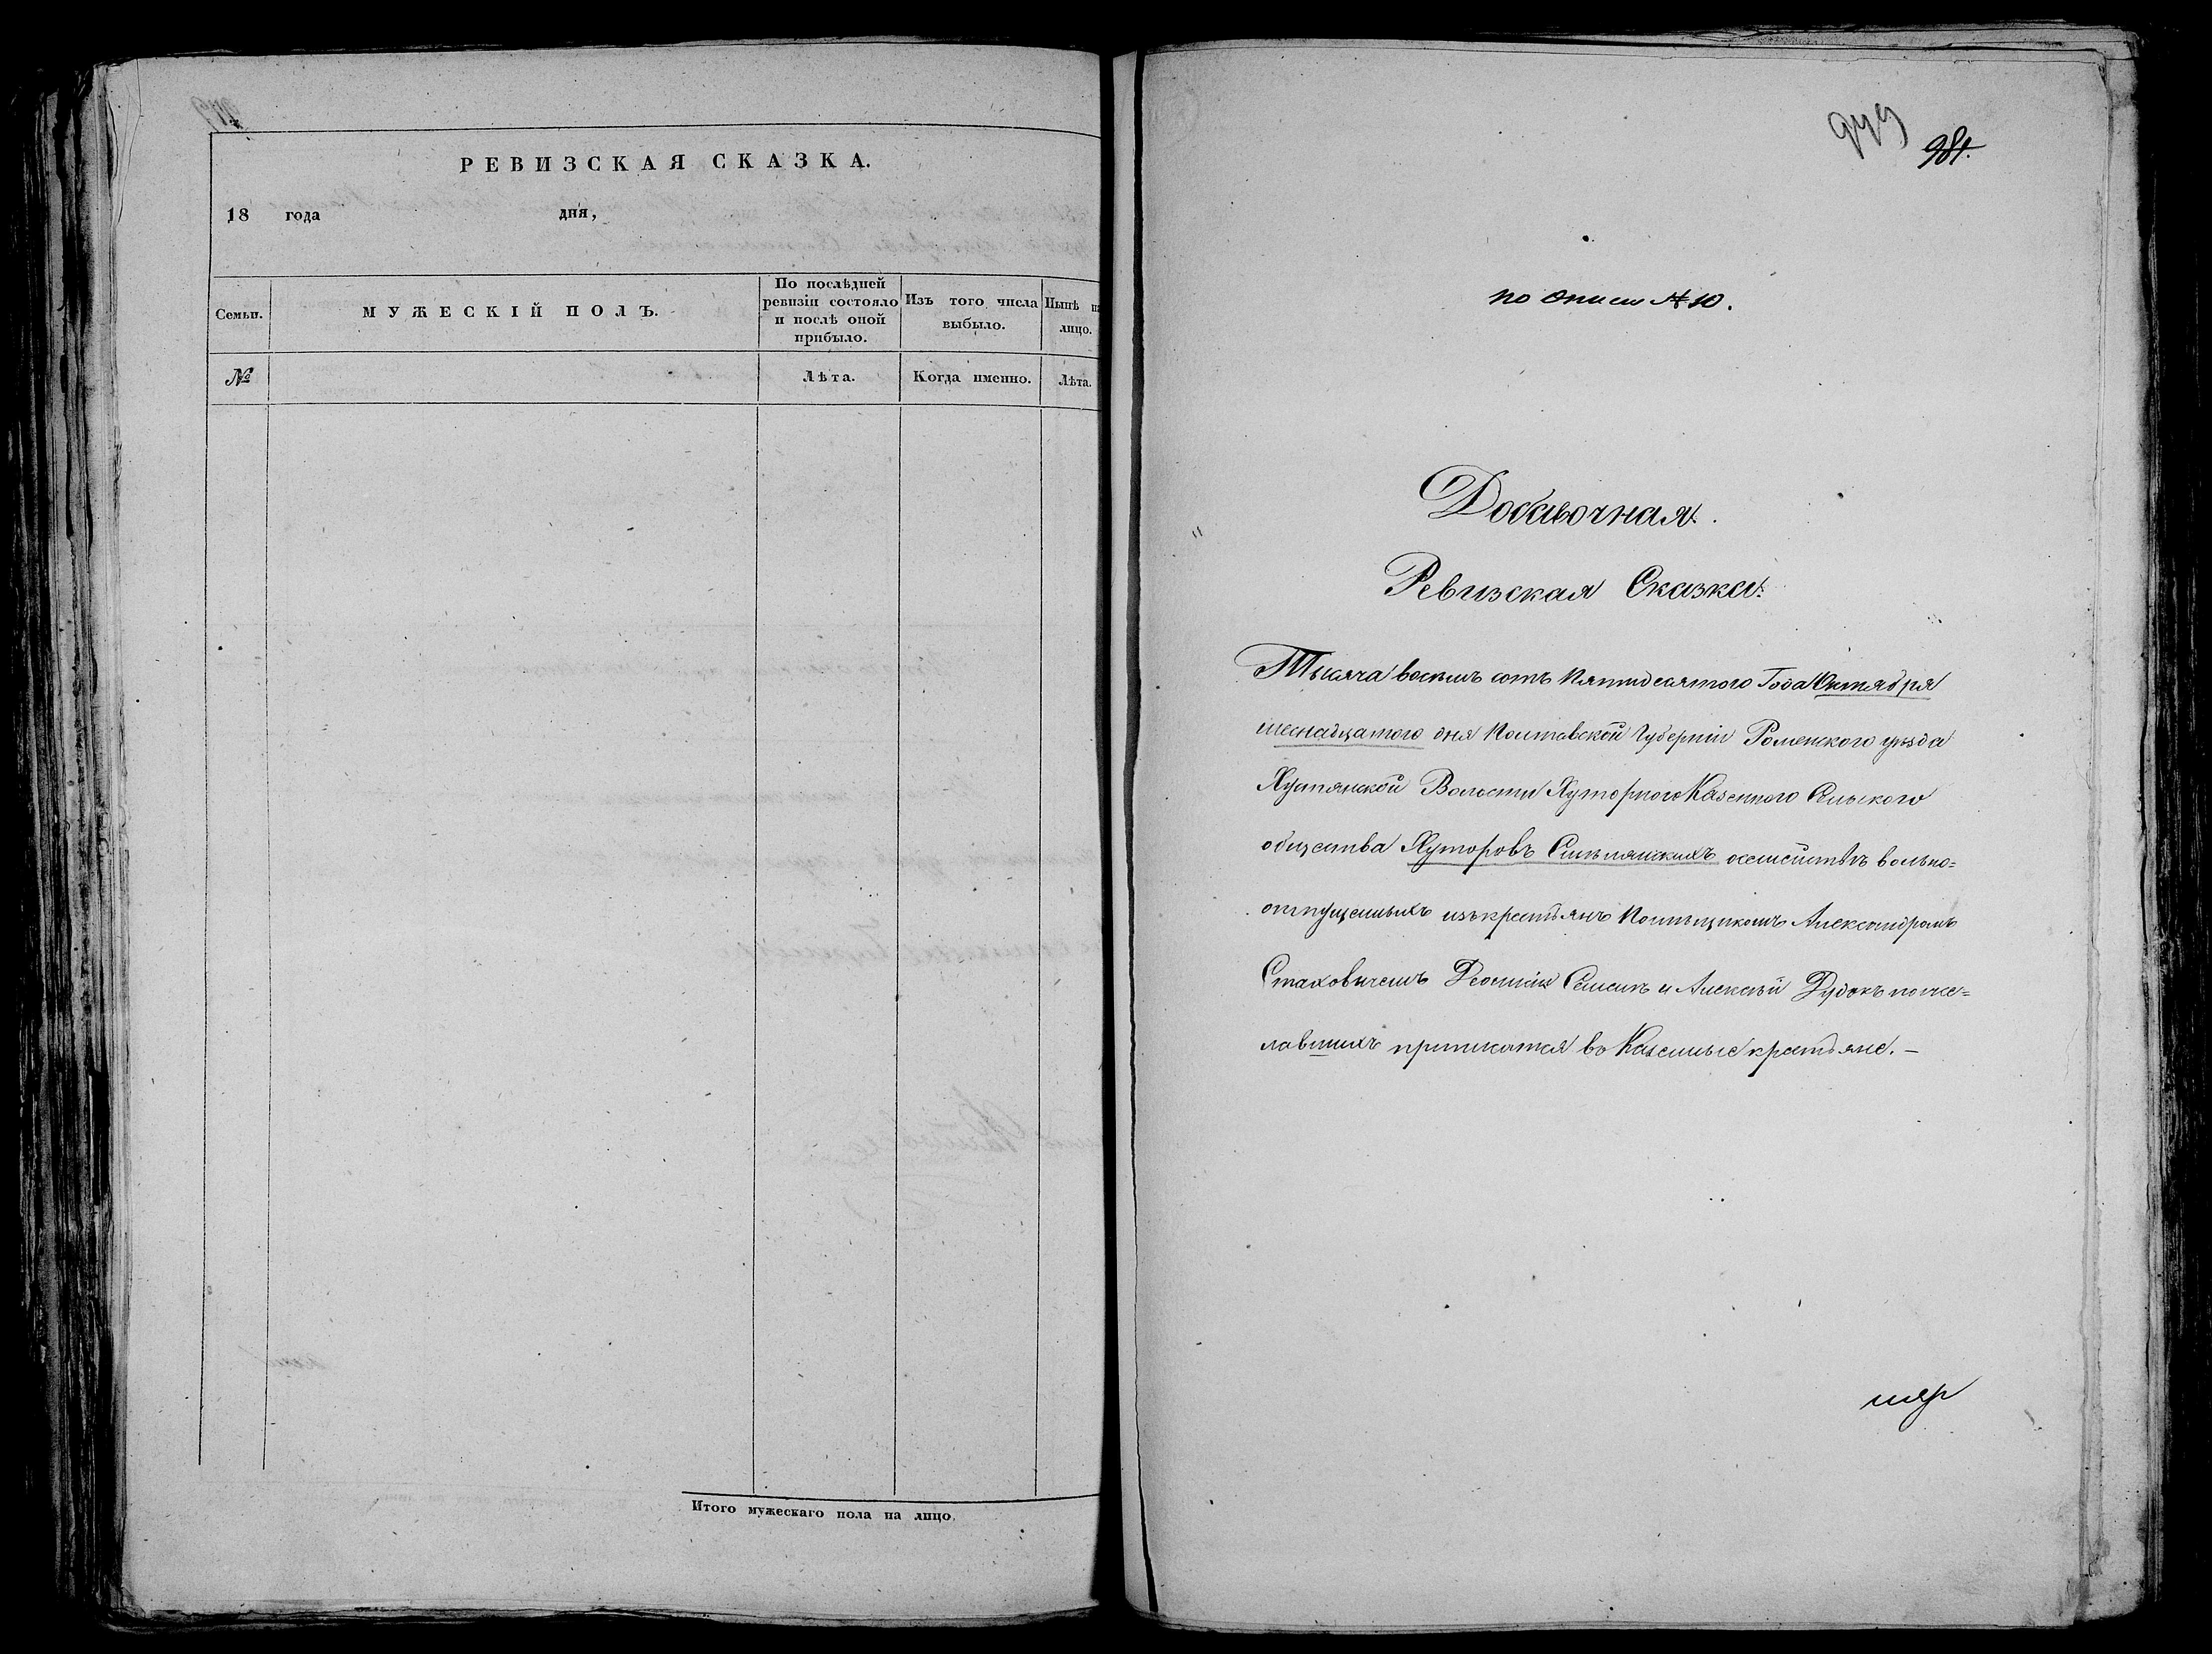 РЕВИЗСКАЯ СКАЗКА.
18 года дня,
Семьи.
МУЖЕСКІЙ ПОЛЪ.
По послѣдней ревизіи состояло и послѣ оной прибыло.
Изъ того числа выбыло.
Нынѣ на лицо.
№
Лѣта.
Когда именно.
Лѣта.
Итого мужескаго пола на лицо
981.
по описи № 10.
Добавочная.
Ревизская Сказка.
Тысяча восемь сотъ Пятидесятого Года Октября
шеснадцатого дня Полтавской Губерніи Роменского уѣзда
Хустянской Волости Хуторного Казенного Сельского
общества Хуторовъ осемействѣ вольно=
отпущенныхъ изъ крестьянъ Помѣщикомъ Александромъ
Стаховичемъ и Алексѣй Дудокъ поже=
лавшихъ приписатся во Казенные крестьяне. —